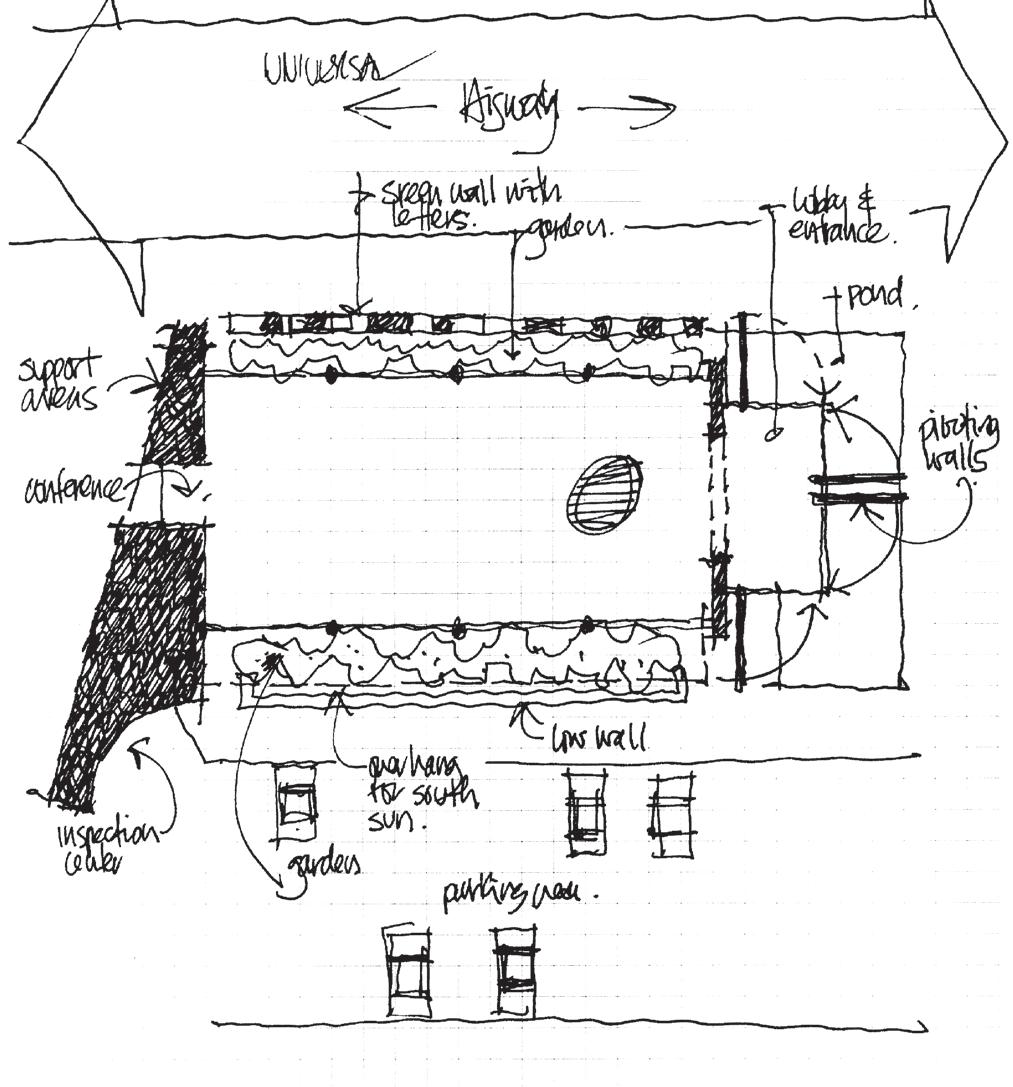 UNIVERSA
Higway
green wall with
letters.
garden.
lobby &
entrance.
pond.
support
areas
pivoting
walls
conference
low wall
overhang
for south
sun.
inspection
center
gardens
parking area.